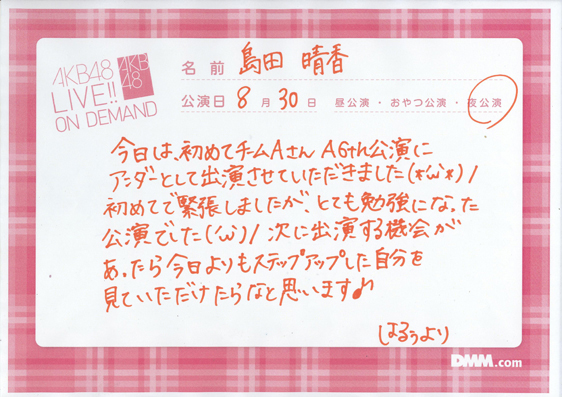 AKB48
LIVE!!
ON DEMAND
AKB
48
名前 島田 晴香
公演日 8月 30日 昼公演・おやつ公演・夜公演
今日は、初めてチームAさん A6th公演に
アンダーとして出演させていただきました(*'ω'*)/
初めてで緊張しましたが、とても勉強になった
公演でした('ω')/ 次に出演する機会が
あったら今日よりもステップアップした自分を
見ていただけたらなと思います♪
はるぅより
DMM.com